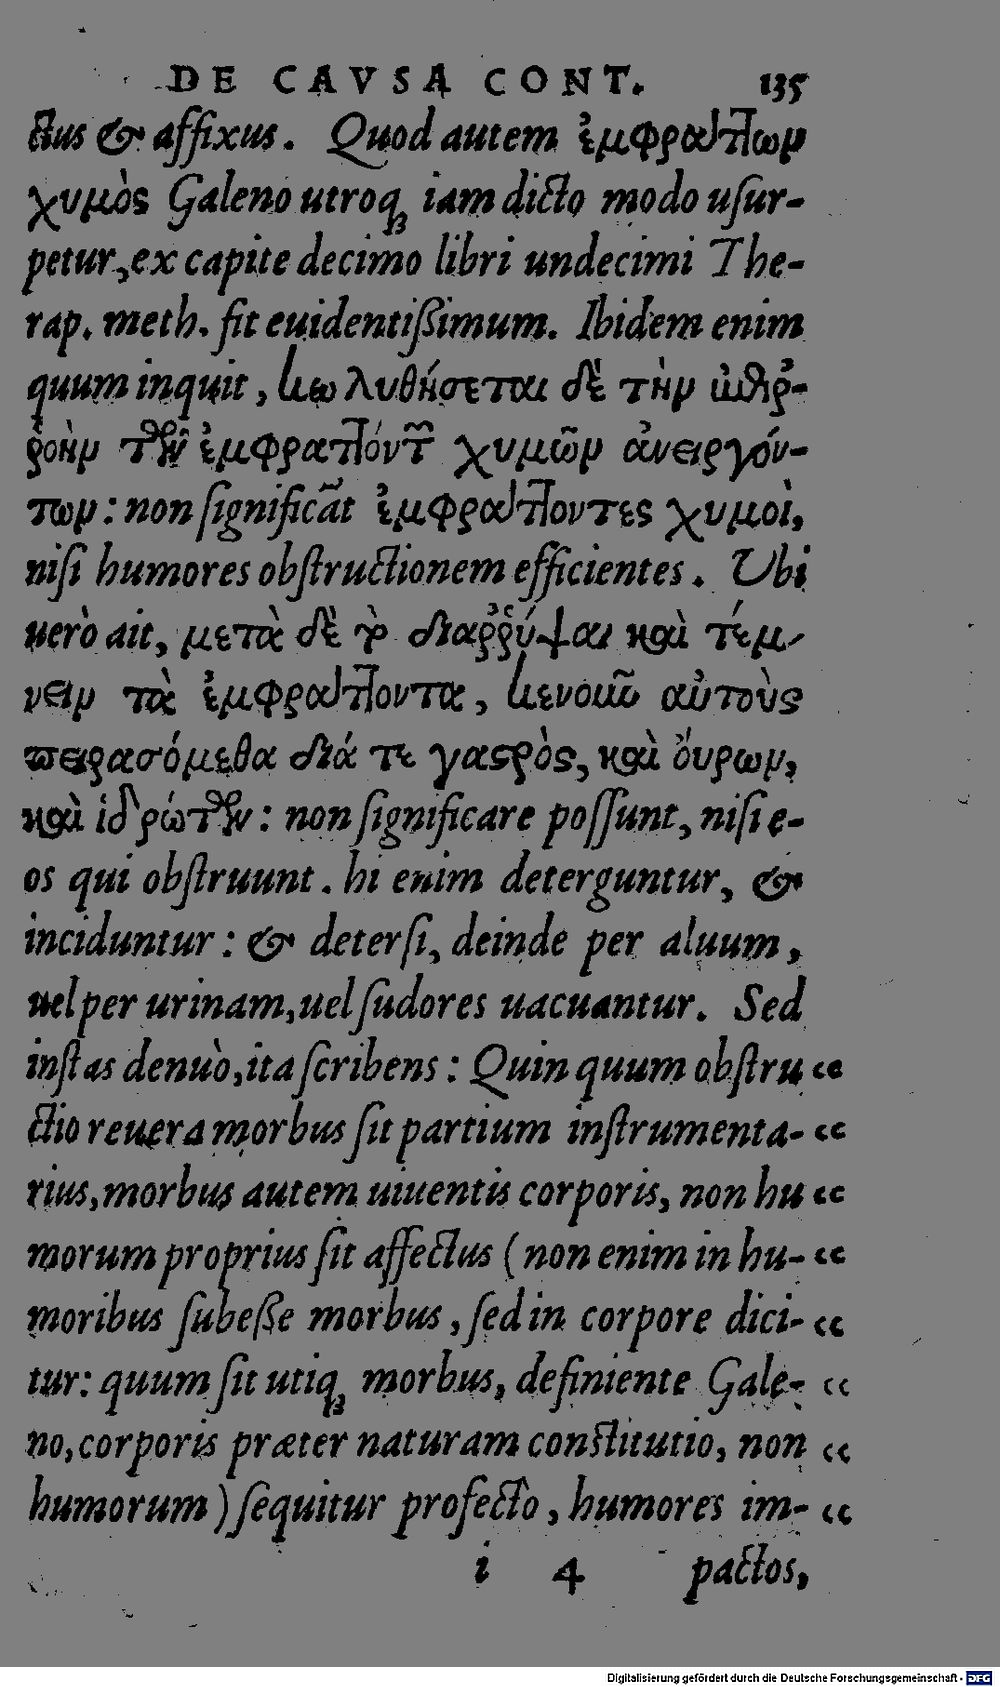 DE CAVSA CONT. 135
ctus & affixus. Quod autem ἐμφράττων
χυμὸς Galeno utroq; iam dicto modo uſur-
petur, ex capite decimo libri undecimi The-
rap. meth. fit euidentißimum. Ibidem enim
quum inquit, κωλυθήσεται δὲ τὴν ὑπόῤ-
ῥοὴν τῶν ἐμφραττόντων χυμῶν ἀνειργόν-
των: non ſignificāt ἐμφράττοντες χυμοὶ,
niſi humores obſtructionem efficientes. Ubi
uerò ait, μετὰ δὲ τὸ διαῤῥύψαι καὶ τέμ-
νειν τὰ ἐμφράττοντα, κενοῦν αὐτοὺς
πειρασόμεθα διά τε γαστρὸς, καὶ ὄυρων,
καὶ ἱδρώτων: non ſignificare poſſunt, niſi e-
os qui obſtruunt. hi enim deterguntur, &
inciduntur: & deterſi, deinde per aluum,
uel per urinam, uel ſudores uacuantur. Sed
inſtas denuò, ita ſcribens: Quin quum obſtru “
ctio reuera morbus ſit partium inſtrumenta- “
rius, morbus autem uiuentis corporis, non hu “
morum proprius ſit affectus (non enim in hu- “
moribus ſubeße morbus, ſed in corpore dici- “
tur: quum ſit utiq; morbus, definiente Gale- “
no, corporis præter naturam conſtitutio, non “
humorum) ſequitur profecto, humores im- “
i 4 pactos,
Digitalisierung gefördert durch die Deutsche Forschungsgemeinschaft - DFG